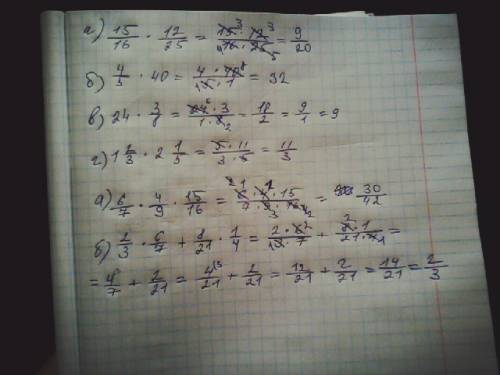 а) 15/16 · 12/25 = 15³ · 12³ / 4 16 · 25 5 = 9/20
б) 4/5 · 40 = 4 · 40⁸ / 15 · 1 = 32
в) 24 · 3/8 = 24⁶ · 3 / 1 · 8 2 = 18/2 = 9/1 = 9
г) 1 2/3 · 2 1/5 = 5 · 11 / 3 · 5 = 11/3
а) 6/7 · 4/9 · 15/16 = 2 6 · 1 4 · 15 / 7 · 3 9 · 16 4 2 = 30/42
б) 2/3 · 6/7 + 8/21 · 1/4 = 2 · 6² / 1 3 · 7 + 2 8 · 1 / 21 · 4 1 =
= 4/7 + 2/21 = 4⁽³ / 21 + 2/21 = 12/21 + 2/21 = 14/21 = 2/3